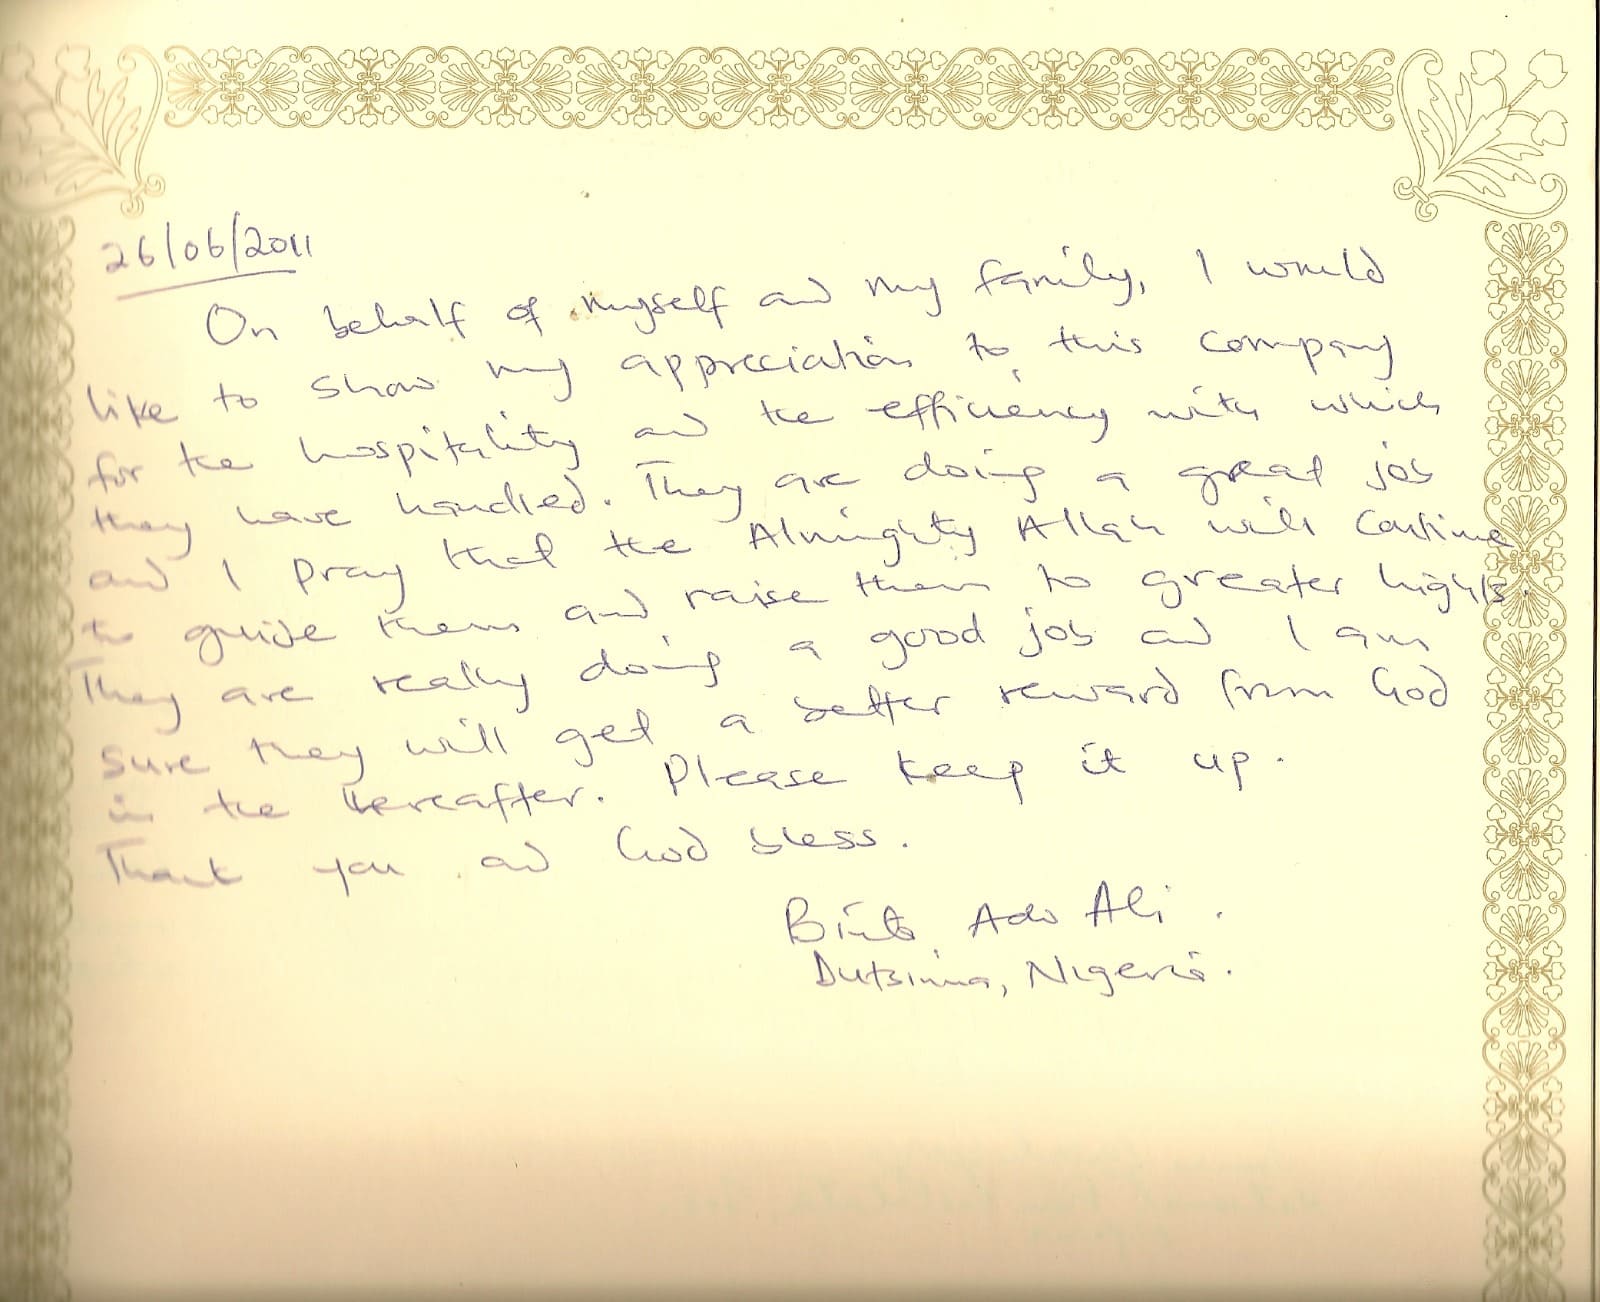 26/06/2011
On behalf of myself and my family, I would
like to show my appreciation to this company
for the hospitality and the efficiency with which
they have handled. They are doing a great job
and I pray that the Almighty Allah will continue
to guide them and raise them to greater highls.
They are really doing a good job and I am
sure they will get a better reward from God
in the hereafter. Please keep it up.
Thank you and God bless.
Binta Ado Ali.
Dutsinma, Nigeria.